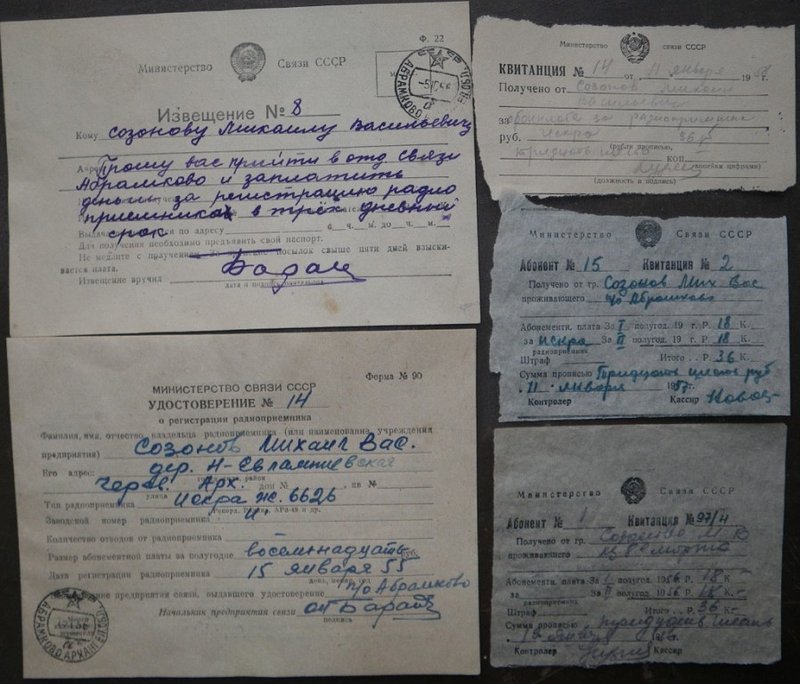 Ф. 22
Министерство Связи СССР
Извещение № 8
Кому Созонову Михаилу Васильевичу
Прошу вас прийти в отд связи
Абрамково и заплатить
деньги за регистрацию радио
приемников в трёх дневный
срок
по адресу ч. м. до ч. м.
Для получения необходимо предъявить свой паспорт.
Не медлите с получением. За посылок свыше пяти дней взыски-
вается плата.
Извещение вручил
дата и подпись
АБРАМКОВО
Форма № 90
МИНИСТЕРСТВО СВЯЗИ СССР
УДОСТОВЕРЕНИЕ № 14
о регистрации радиоприемника
Фамилия, имя, отчество владельца радиоприемника (или наименование учреждения
предприятия) Созонов Михаил Вас.
Его адрес: дер. Н-Евлампиевская
Черев. Арх. дом № кв №
улица
Тип радиоприемника Искра Ж. 6626
Рекорд, АРЗ-49 и др.
Заводской номер радиоприемника
Количество отводов от радиоприемника
Размер абонементной платы за полугодие восемнадцать руб.
Дата регистрации радиоприемника 15 января 55
день, месяц, год
предприятия связи, выдавшего удостоверение п/о Абрамково
Начальник предприятия связи
подпись
АБРАМКОВО АРХАНГ
Министерство связи СССР
КВИТАНЦИЯ № 14 от 11 января 1958 г.
Получено от Созонов Михаил
Васильевич
за абонплата за радиоприемник
руб. Искра 36 р
(рубли прописью)
тридцать шесть КОП (копейки цифрами)
(должность и подпись)
Министерство Связи СССР
Абонент № 15 Квитанция № 2
Получено от гр. Созонов Мих Вас
проживающего п/о Абрамково
Абонементн. плата За I полугод. 19 г. Р. 18 К.
за Искра За II полугод. 19 г. Р. 18 К.
радиоприемник
Штраф Итого . . Р. 36 К.
Сумма прописью Тридцать шесть руб
11 января 1957 г.
Контролер Кассир
Министерство Связи СССР
Абонент № 1 Квитанция № 97/4
Получено от гр. М В
проживающего
Абонементн. плата За I полугод. 1956 Р. 18 К.
за За II полугод. 1956 Р. 18 К.
радиоприемник
Штраф Итого . . Р. 36 К.
Сумма прописью тридцать шесть
января
Контролер Кассир